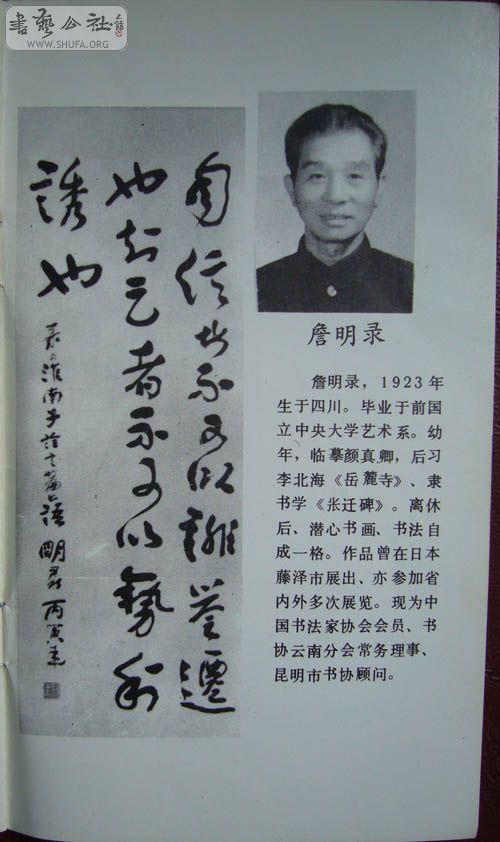 書藝公社
WWW.SHUFA.ORG
自信者不可以誹譽遷
也知足者不可以勢利
誘也
淮南子詮言篇語 明录 丙寅
詹明录
詹明录，1923年
生于四川。毕业于前国
立中央大学艺术系。幼
年，临摹颜真卿，后习
李北海《岳麓寺》、隶
书学《张迁碑》。离休
后、潜心书画、书法自
成一格。作品曾在日本
藤泽市展出、亦参加省
内外多次展览。现为中
国书法家协会会员、书
协云南分会常务理事、
昆明市书协顾问。